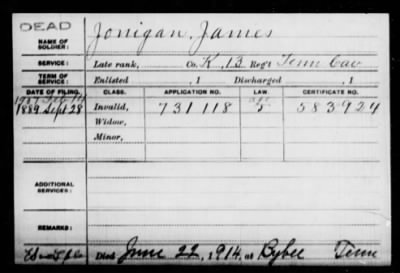 DEAD
NAME OF SOLDIER: Jonigan, James
SERVICE: Late rank, Co. K, 13 Reg't Tenn Cav
TERM OF SERVICE: Enlisted , 1 Discharged , 1
DATE OF FILING. CLASS. APPLICATION NO. LAW. CERTIFICATE NO.
1907 Feb age
1889 Sept 28 Invalid, 731118 5 583924
Widow,
Minor,
ADDITIONAL SERVICES:
REMARKS:
Died June 22, 1914, at Bybee Tenn